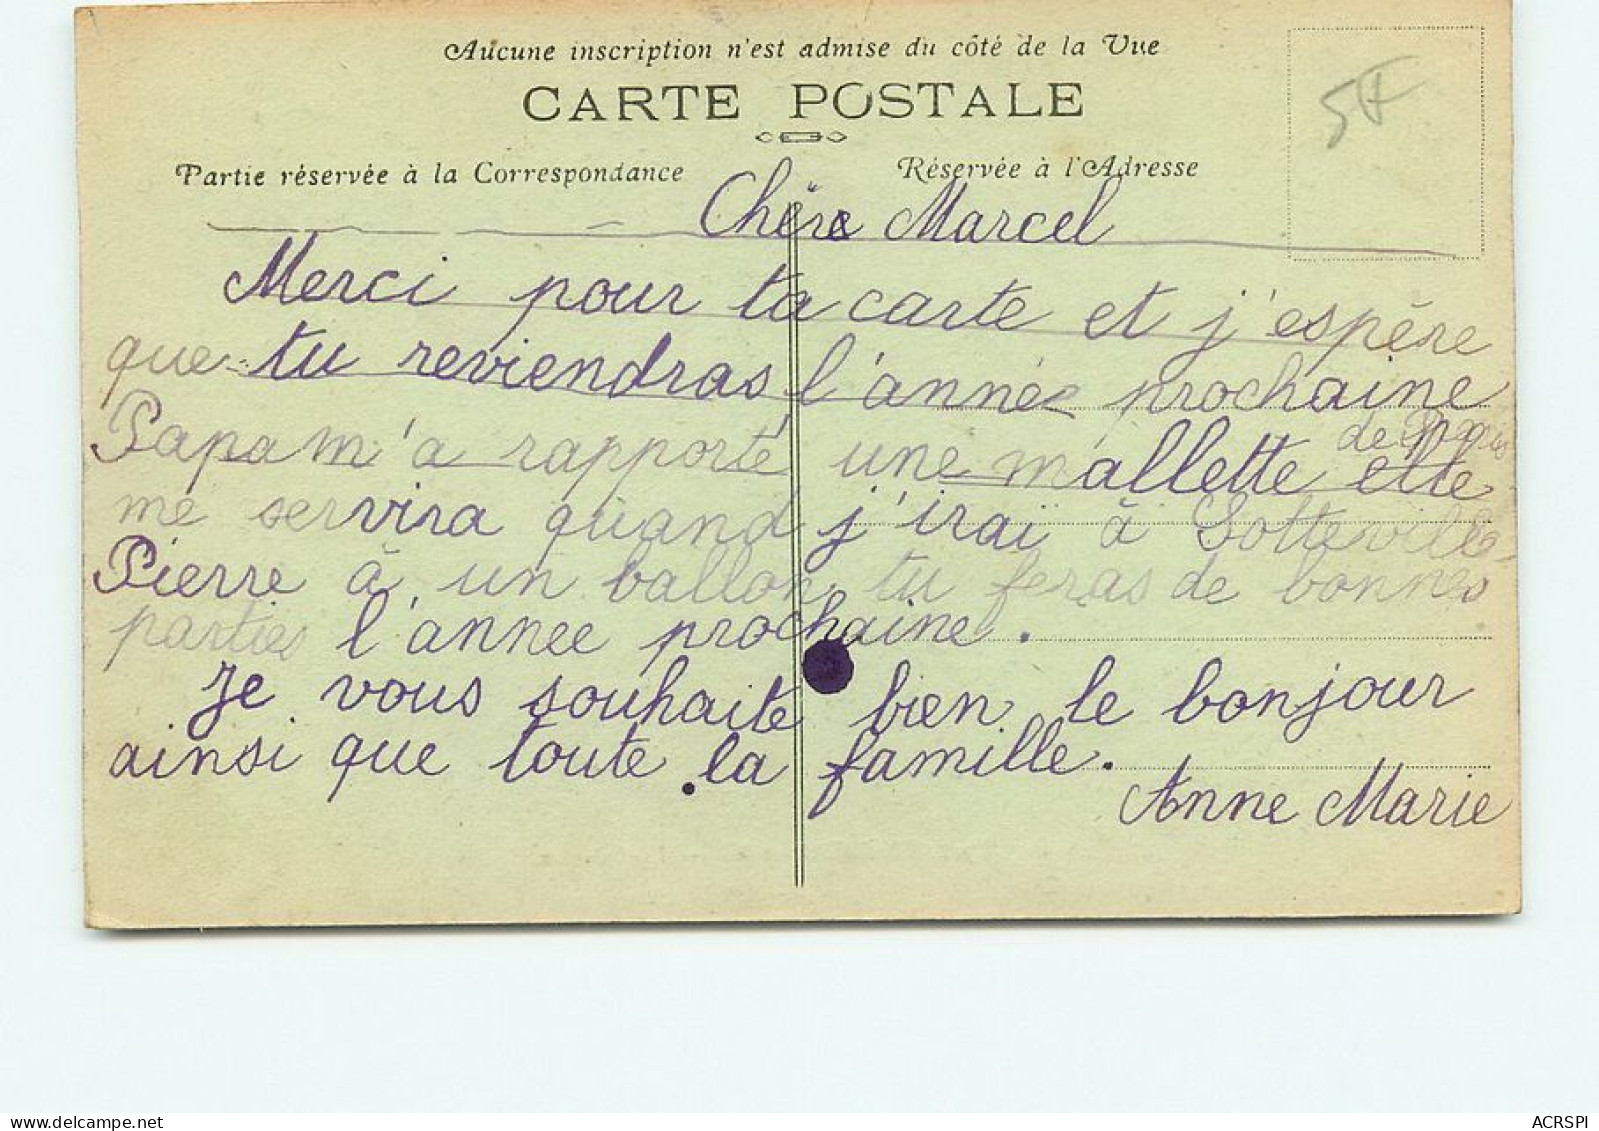 Aucune inscription n'est admise du côté de la Vue
CARTE POSTALE
5F
Partie réservée à la Correspondance
Réservée à l'Adresse
Chère Marcel
Merci pour ta carte et j'espère
que tu reviendras l'année prochaine
Papa m'a rapporté une mallette de Paris elle
me servira quand j'irai à Sotteville
Pierre à un ballon tu feras de bonnes
parties l'annee prochaine.
Je vous souhaite bien le bonjour
ainsi que toute la famille.
Anne Marie
ACRSPI